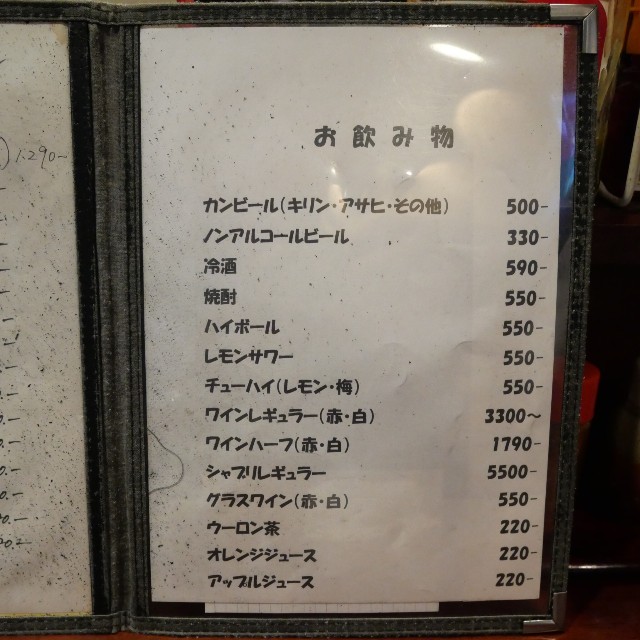 1290-
お飲み物
カンビール(キリン・アサヒ・その他) 500-
ノンアルコールビール 330-
冷酒 590-
焼酎 550-
ハイボール 550-
レモンサワー 550-
チューハイ(レモン・梅) 550-
ワインレギュラー(赤・白) 3300〜
ワインハーフ(赤・白) 1790-
シャブリレギュラー 5500-
グラスワイン(赤・白) 550-
ウーロン茶 220-
オレンジジュース 220-
アップルジュース 220-